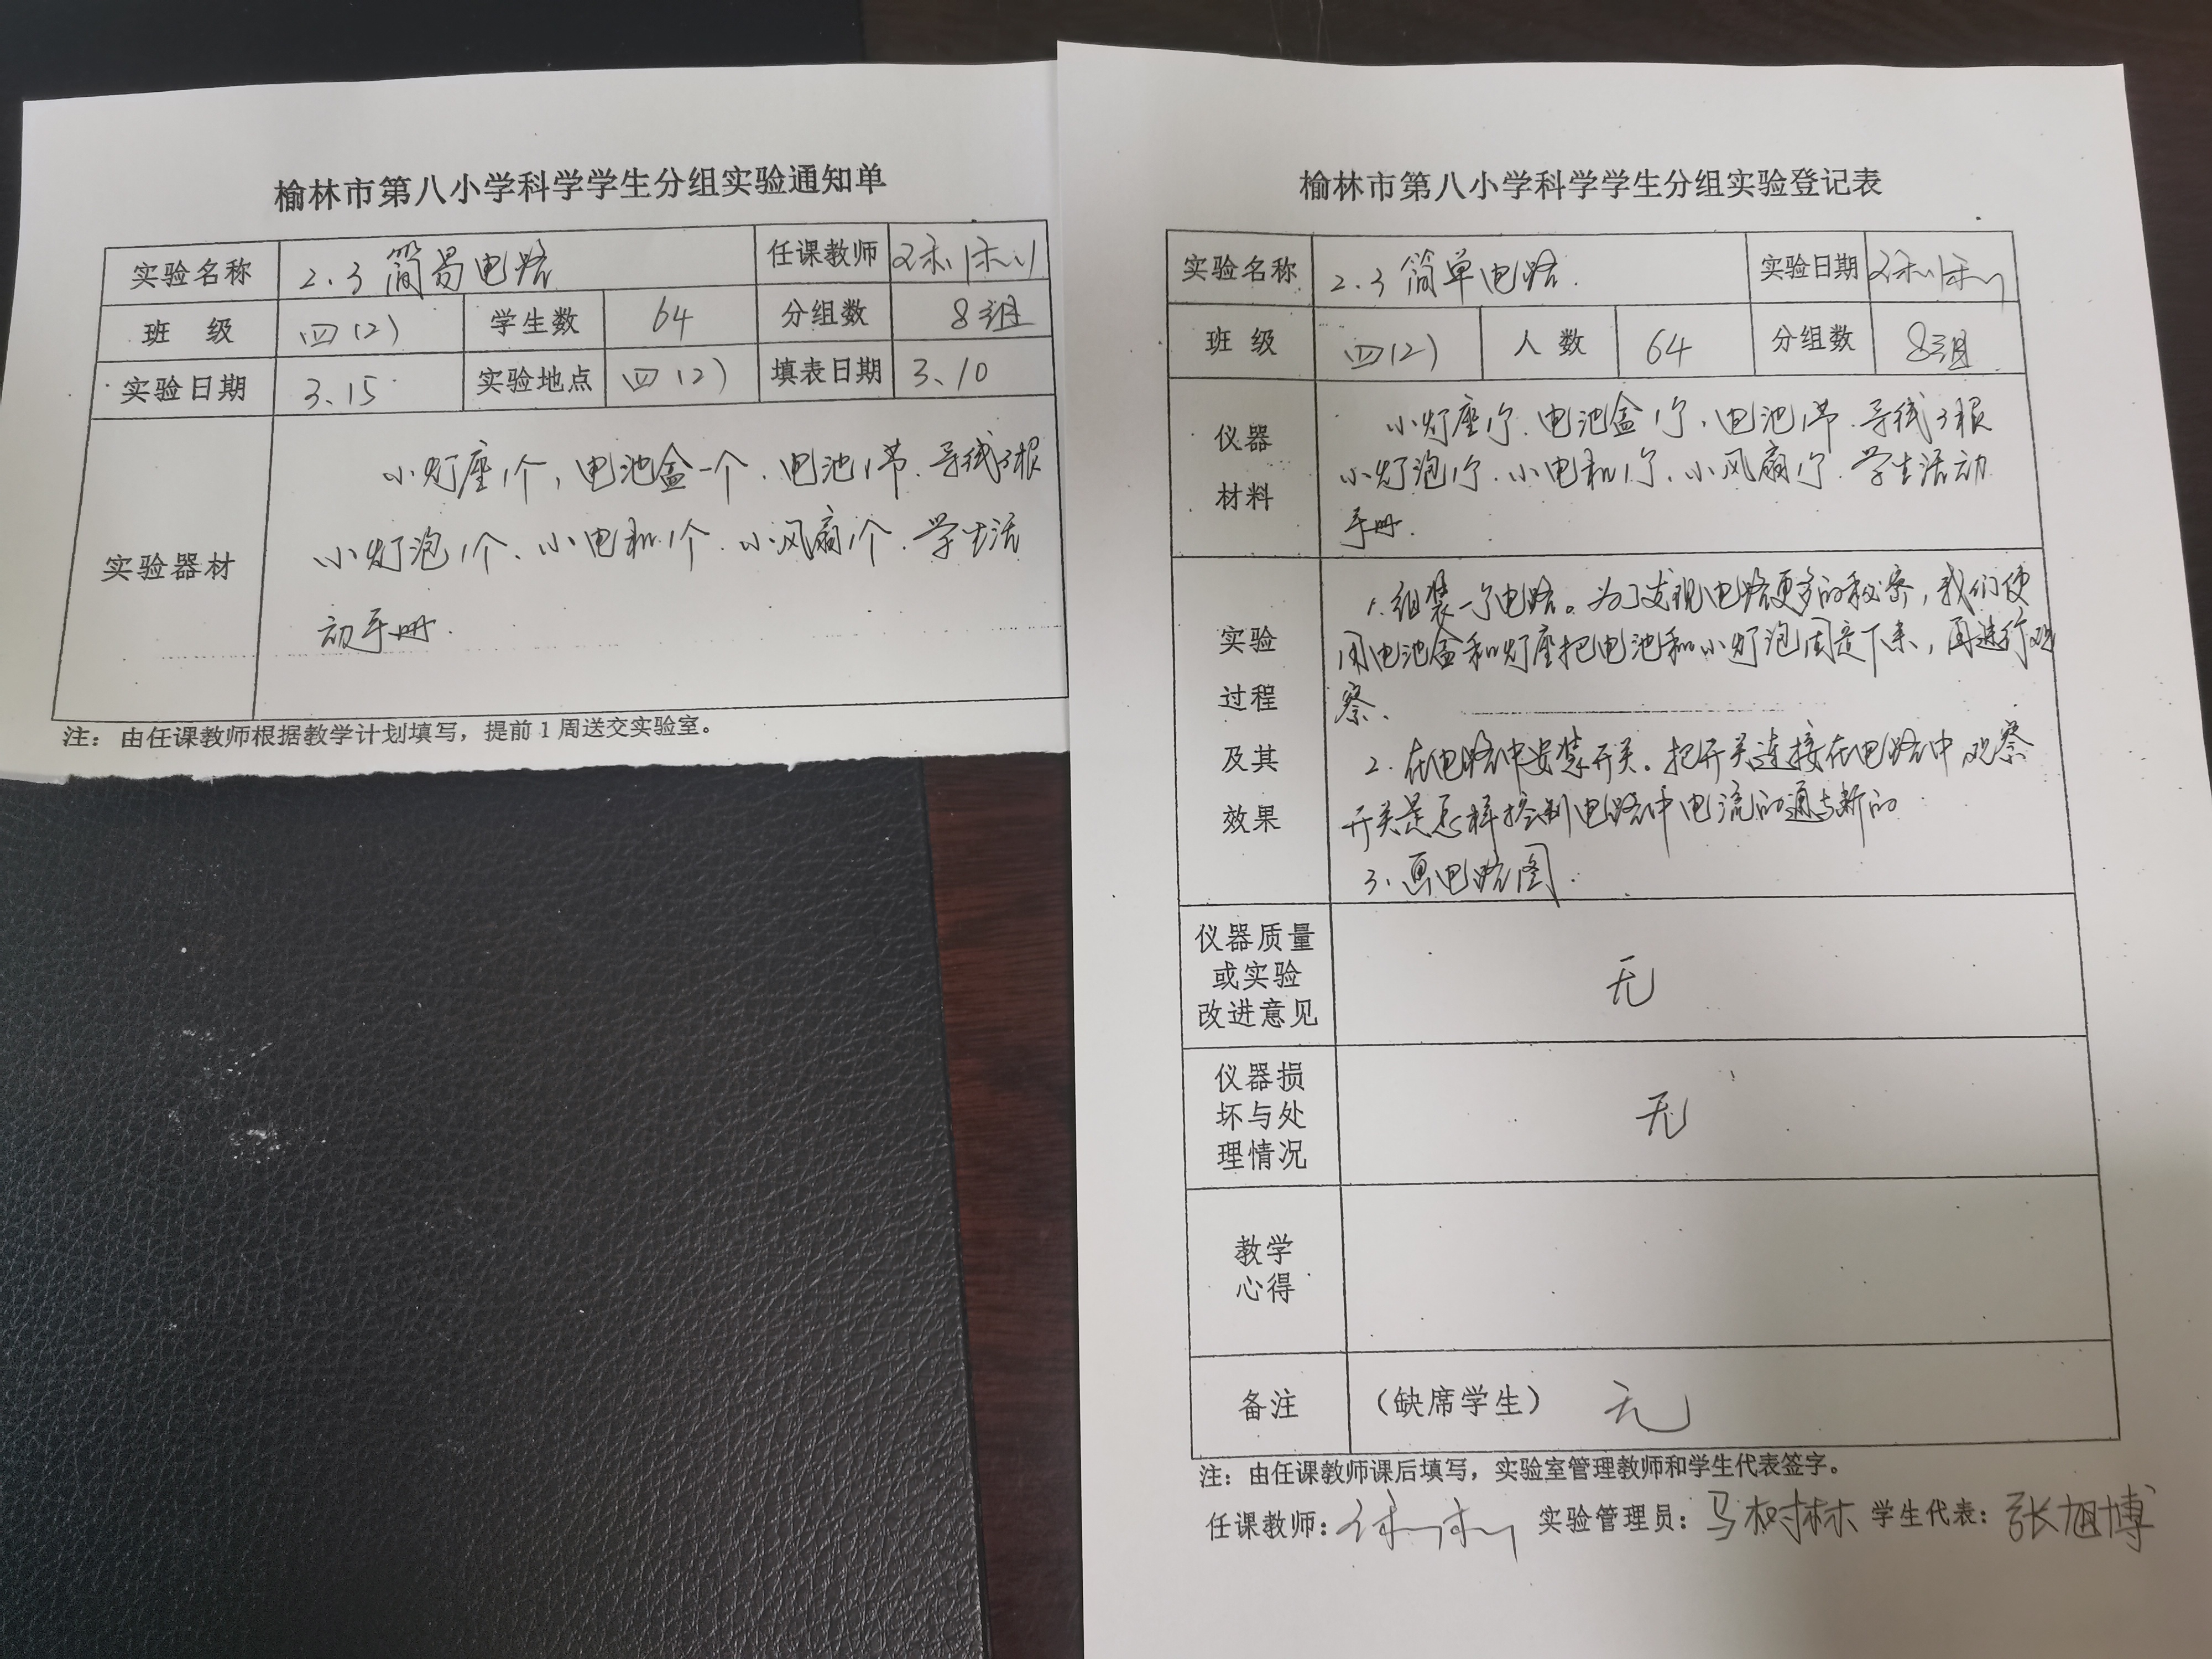 榆林市第八小学科学学生分组实验通知单
实验名称 2.3 简易电路 任课教师
班 级 四(2) 学生数 64 分组数 8组
实验日期 3.15 实验地点 四(2) 填表日期 3.10
实验器材
小灯座1个，电池盒一个、电池1节、导线3根
小灯泡1个、小电机1个、小风扇1个、学生活
动手册.
注：由任课教师根据教学计划填写，提前1周送交实验室。
榆林市第八小学科学学生分组实验登记表
实验名称 2.3 简单电路. 实验日期
班 级 四(2) 人 数 64 分组数 8组
仪器
材料
小灯座1个、电池盒1个、电池1节、导线3根
小灯泡1个、小电机1个、小风扇1个、学生活动
手册.
实验
过程
及其
效果
1.组装一个电路。为了发现电路更多的秘密，我们使
用电池盒和灯座把电池和小灯泡固定下来，再进行观
察、
2.在电路中安装开关。把开关连接在电路中观察
开关是怎样控制电路中电流的通与断的
3、画电路图.
仪器质量
或实验
改进意见
无
仪器损
坏与处
理情况
无
教学
心得
备注 （缺席学生） 无
注：由任课教师课后填写，实验室管理教师和学生代表签字。
任课教师： 实验管理员：马树林 学生代表：张旭博